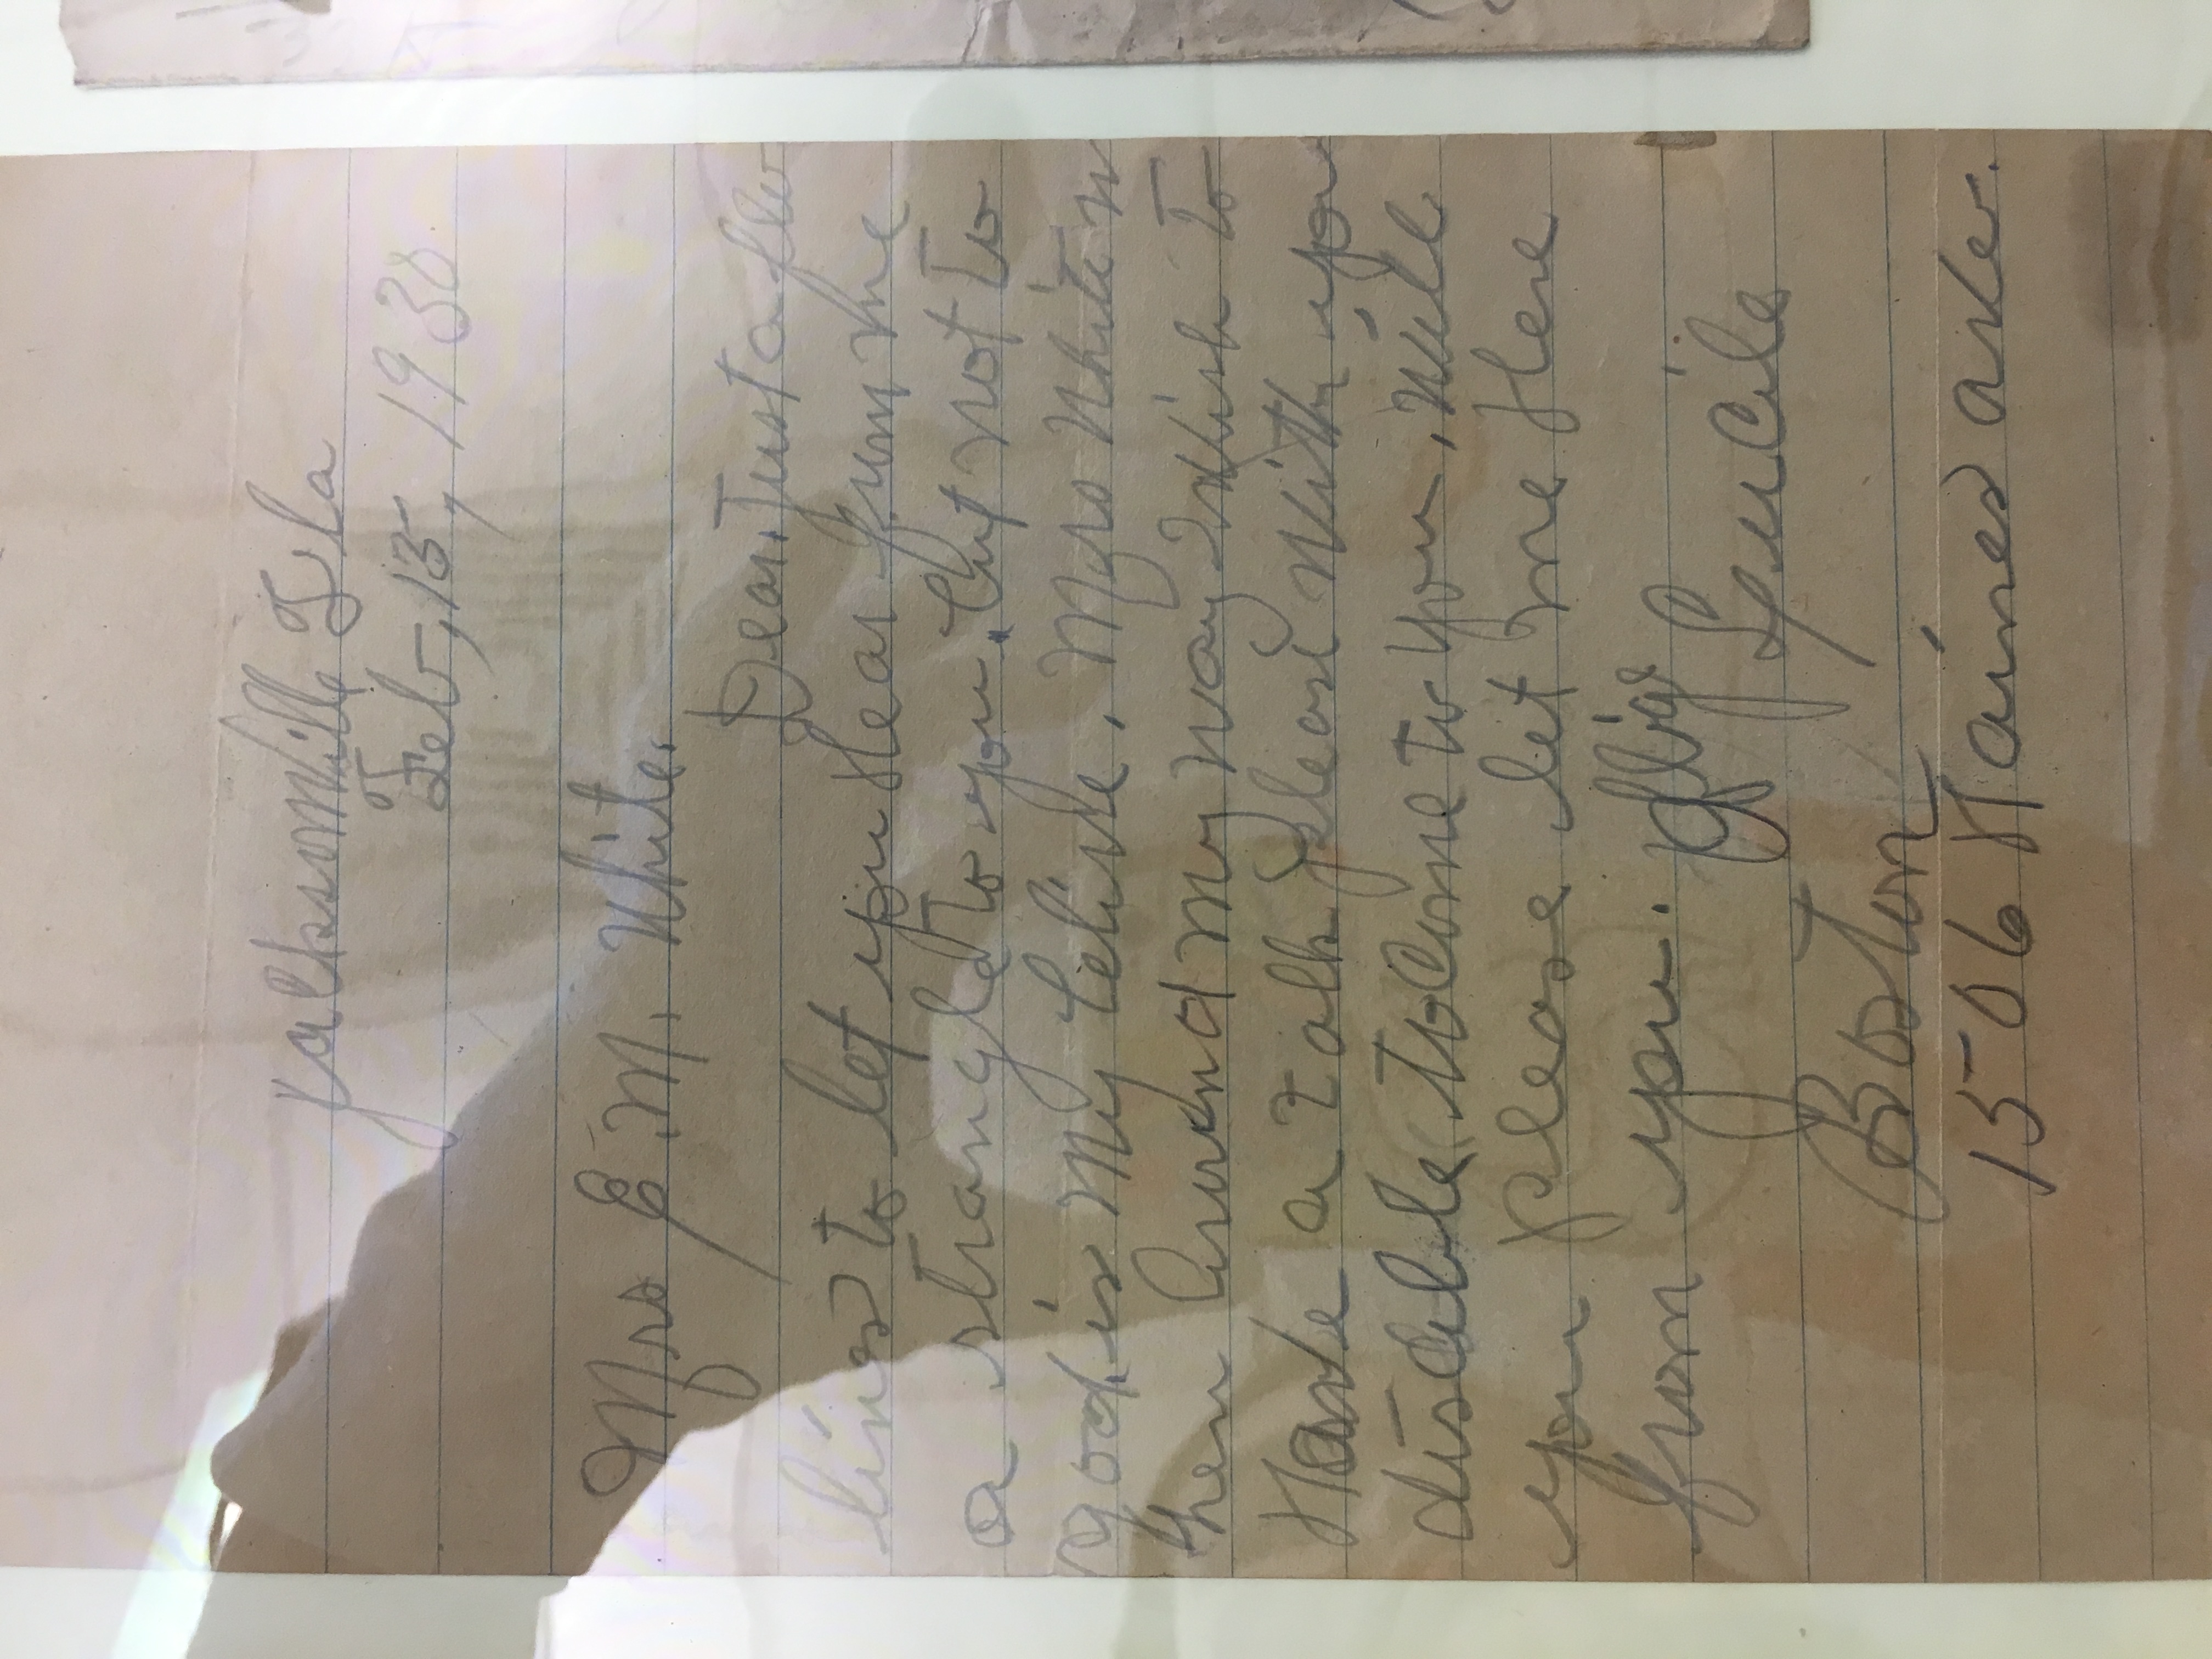 Jacksonvill Fla
Feb, 15, 1938
Mrs E. M. White.
Dear. Just a few
lines to let you Hear frum me
a strangle to you. but not to
god. is my belive. Mrs White w
hen Around my way I Wish to
Have a talk please With you
disable to Come to you. Will
you please let me Here
from you.
Lucile
Boston
1506 Haines ave.